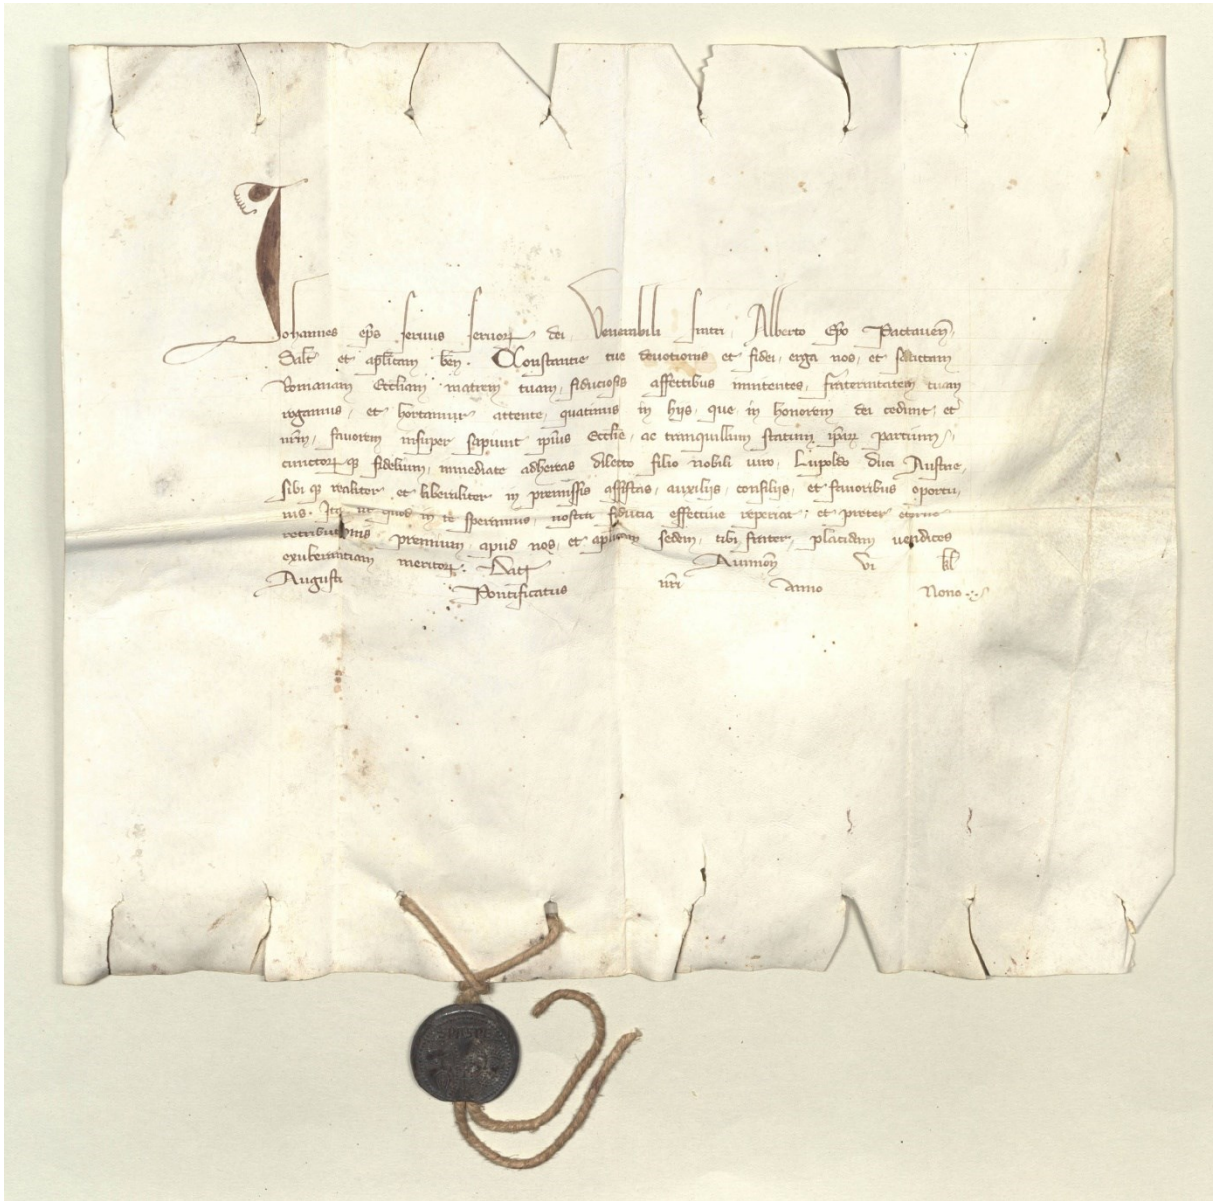 Johannes ep̅s seruus seruoꝝ dei. Venerabili fratri. Alberto Ep̅o Pactauen̅.
Sal̅t et ap̅licam ben̅. Constantie tue deuotionis et fidei, erga nos, et sanctam
Romanam Eccl̅iam matrem tuam, fiduciosis affectibus innitentes, fraternitatem tuam
rogamus, et hortamur attente, quatinus in hijs, que in honorem dei cedunt, et
nr̅m, fauorem insuper sapiunt ip̅ius Eccl̅ie, ac tranquillum statum ip̅aꝝ partium,
cunctoꝝ qꝫ fidelium, inmediate adhereas dilecto filio nobili uiro, Lupoldo duci Austrie,
sibi qꝫ realiter et liberaliter in premissis assistas, auxilijs, consilijs, et fauoribus oportu
nis. Ita ut quod in te speramus, nostra fiducia effectiue reperiat; et preter eterne
retributionis premium, apud nos, et ap̅licam sedem, tibi frater, placidam uendices
exuberantiam meritoꝝ. Dat̅ Auinion̅ vi kl̅
Augusti Pontificatus nr̅i anno Nono